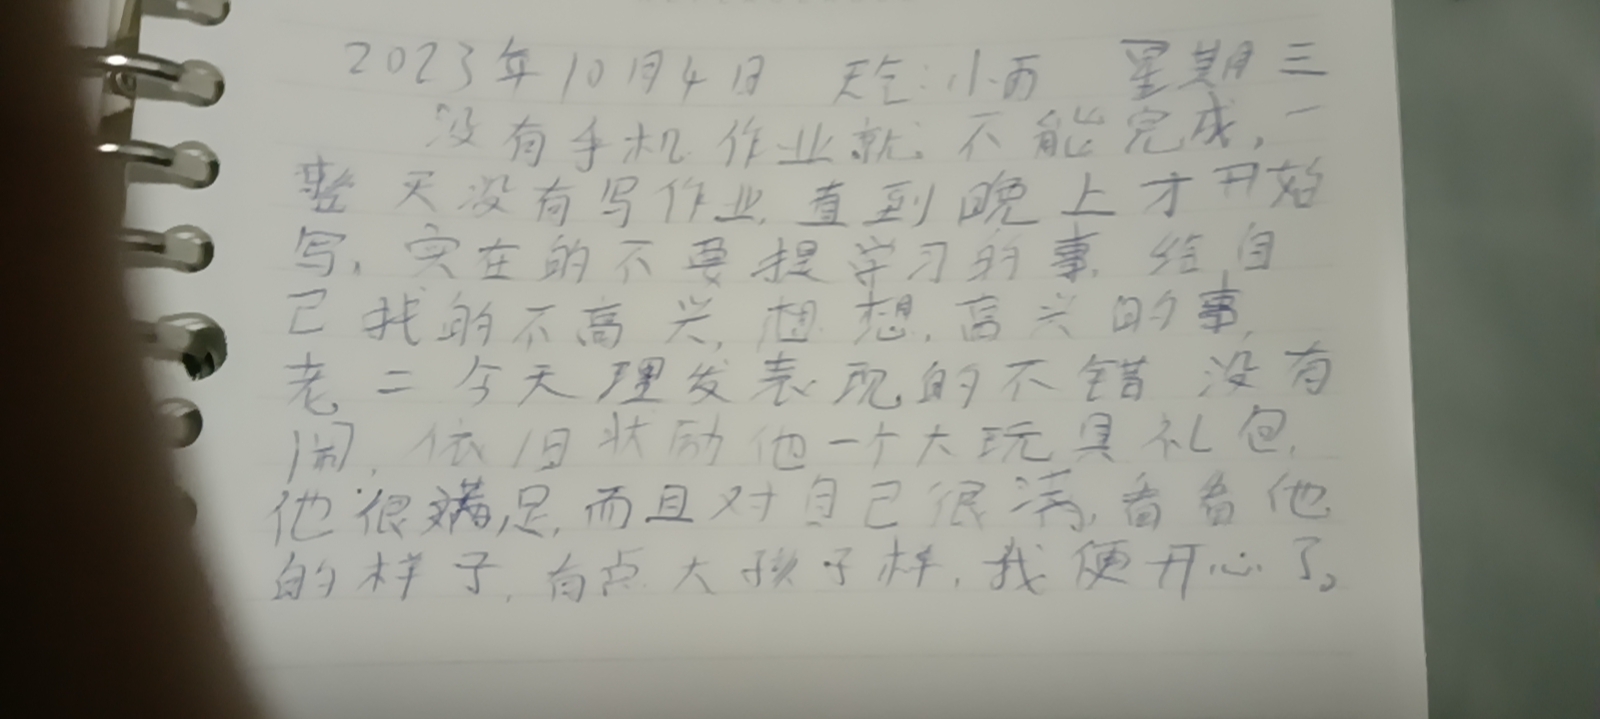 2023年10月4日 天气:小雨 星期三
没有手机作业就不能完成,一
整天没有写作业,直到晚上才开始
写,实在的不要提学习的事,给自
己找的不高兴,想想,高兴的事,
老二今天理发表现的不错 没有
闹,依旧状励他一个大玩具礼包,
他很满足,而且对自己很满,看看他
的样子,有点大孩子样,我便开心了。